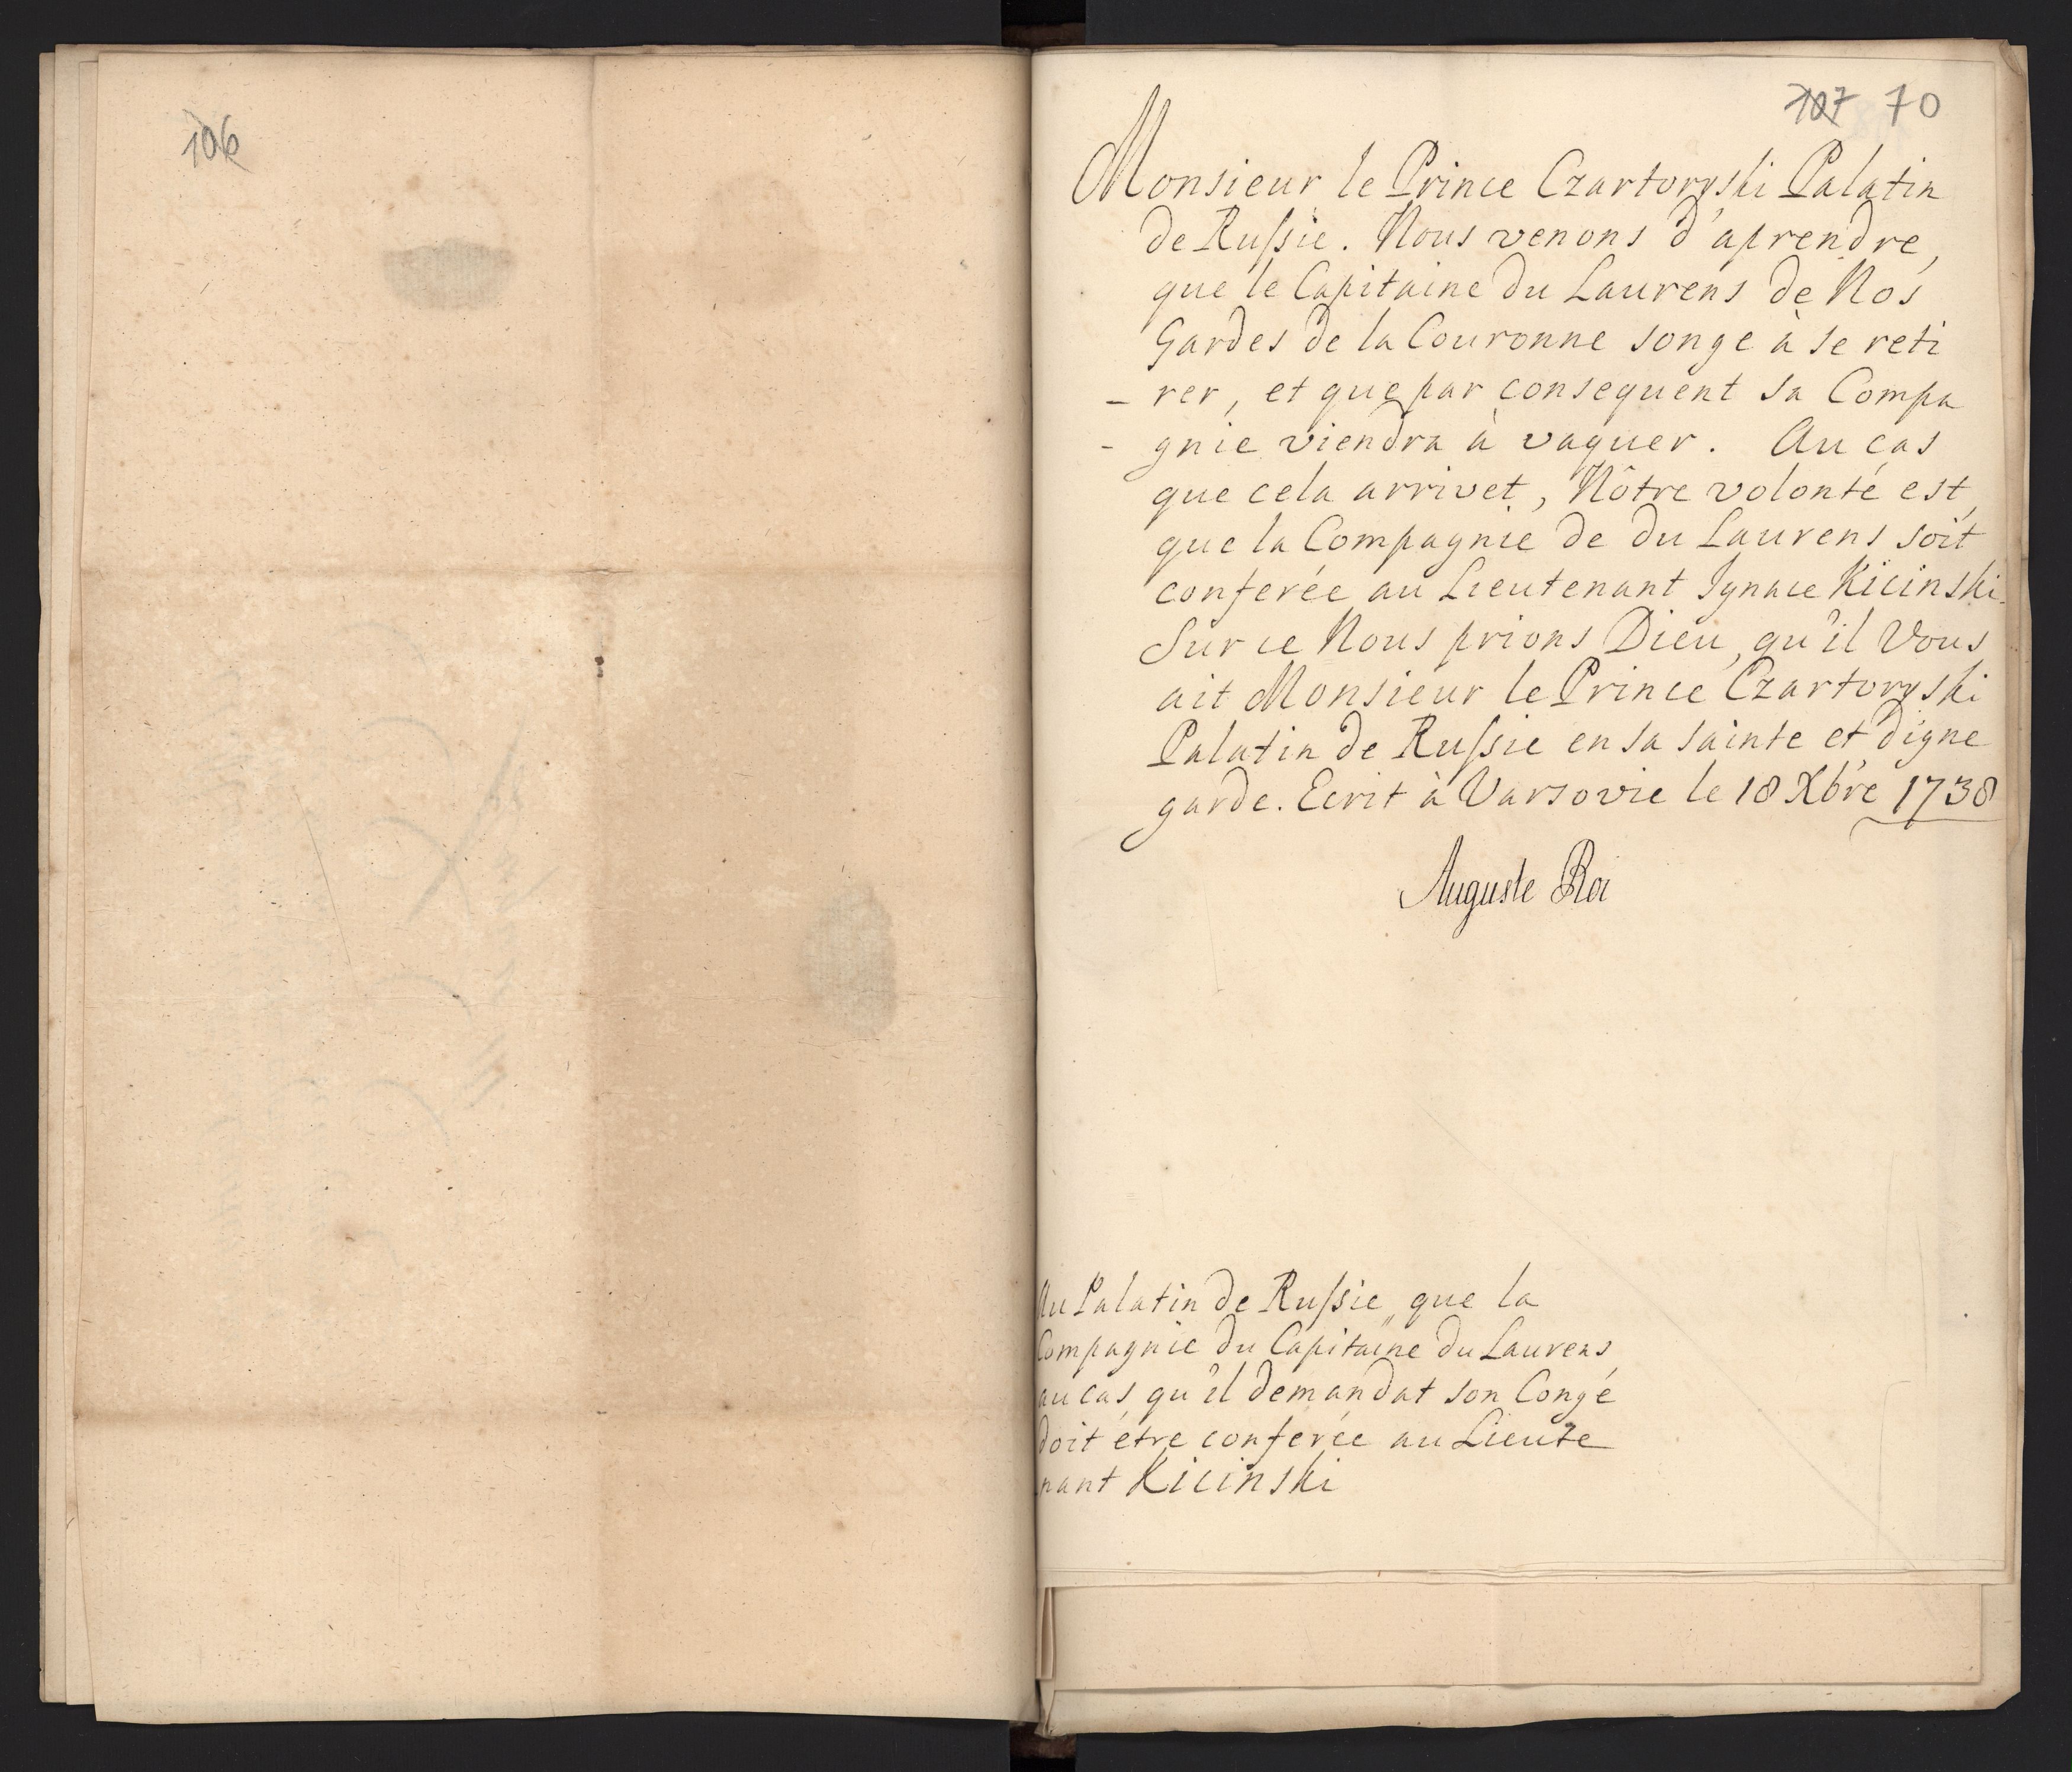 106
107 70
Monsieur le Prince Czartoryski Palatin
de Russie. Nous venons d'aprendre,
que le Capitaine du Laurens de Nos
Gardes de la Couronne songe à se reti
- rer, et que par consequent sa Compa
- gnie viendra à vaquer. Au cas
que cela arrivet, Nôtre volonté est,
que la Compagnie de du Laurens soit
conferée au Lieutenant Ignace Kicinski.
Sur ce Nous prions Dieu, qu'il Vous
ait Monsieur le Prince Czartoryski
Palatin de Russie en sa sainte et digne
garde. Ecrit à Varsovie le 18 Xbre 1738
Auguste Roi
Au Palatin de Russie, que la
Compagnie du Capitaine du Laurens,
au cas, qu'il demandat son Congé
doit étre conferée au Lieute
nant Kicinski